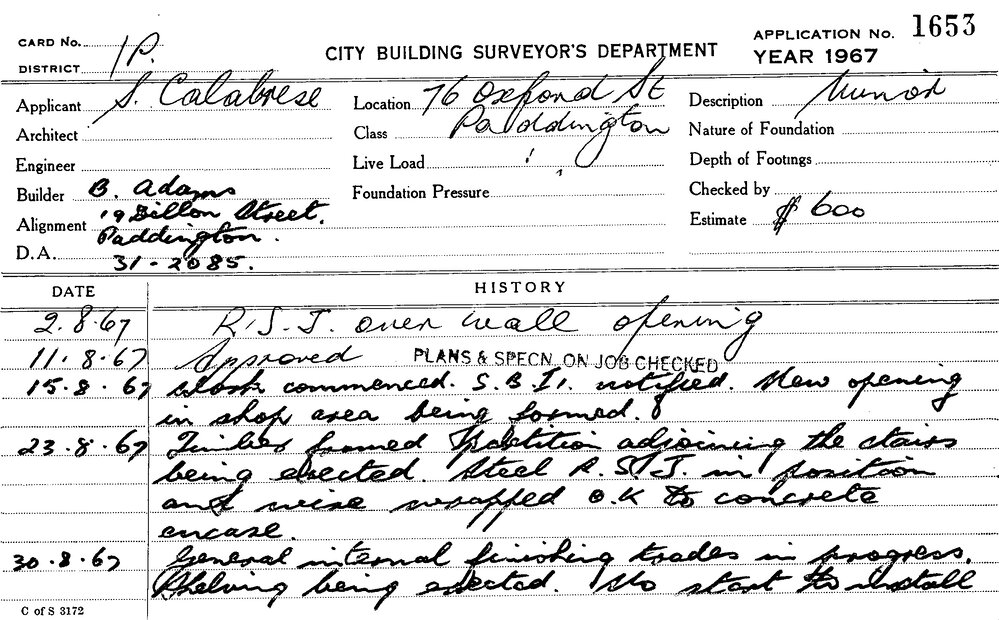 CARD No. 1P.
DISTRICT
CITY BUILDING SURVEYOR'S DEPARTMENT
APPLICATION No. 1653
YEAR 1967
Applicant S. Calabrese
Location 76 Oxford St
Paddington
Description Minor
Architect
Class
Nature of Foundation
Engineer
Live Load
Depth of Footings
Builder B. Adams
Foundation Pressure
Checked by
19 Dillon Street.
Alignment
Paddington.
Estimate $ 600
D.A. 31-2085.
DATE HISTORY
2.8.67 R.S.J. over wall opening
11.8.67 Approved PLANS & SPECN. ON JOB CHECKED
15.8.67 Work commenced. S.B.I. notified. New opening
in shop area being formed.
23.8.67 Timber framed partition adjoining the stairs
being erected. Steel R.S.J. in position
and wire wrapped O.K to concrete
encase.
30.8.67 General internal finishing trades in progress.
Shelving being erected. No start to install
C of S 3172